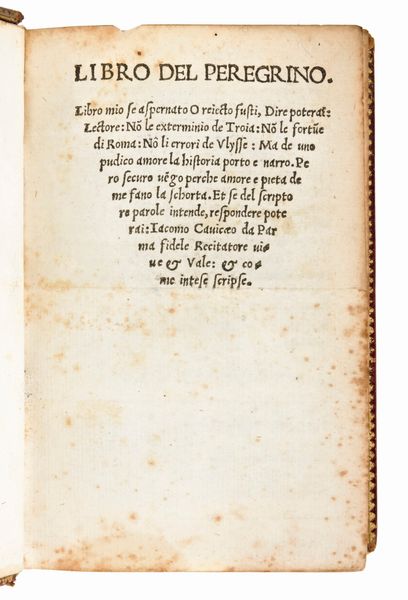 LIBRO DEL PEREGRINO.
Libro mio se aspernato O reiecto fusti, Dire poterai:
Lectore: Nõ le exterminio de Troia: Nõ le fortũe
di Roma: Nõ li errori de Vlysse: Ma de uno
pudico amore la historia porto e narro. Pe
ro securo uẽgo perche amore e pieta de
me fano la schorta. Et se del scripto
re parole intende, respondere pote
rai: Iacomo Cauicæo da Par
ma fidele Recitatore ui⸗
ue & Vale: & co⸗
me intese scripse.